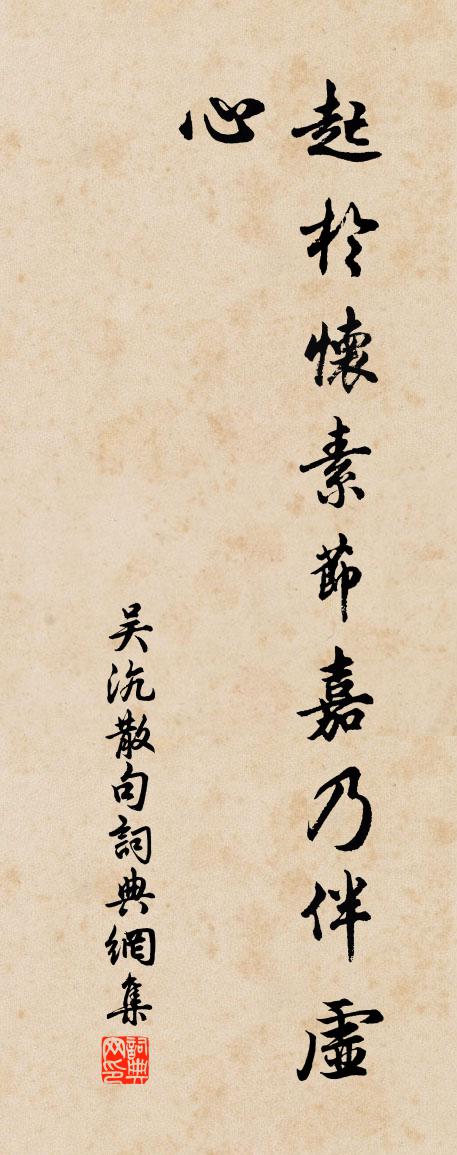 起於懷素節嘉乃伴虛
心
吴沆散句詞典網集
詞典
网印